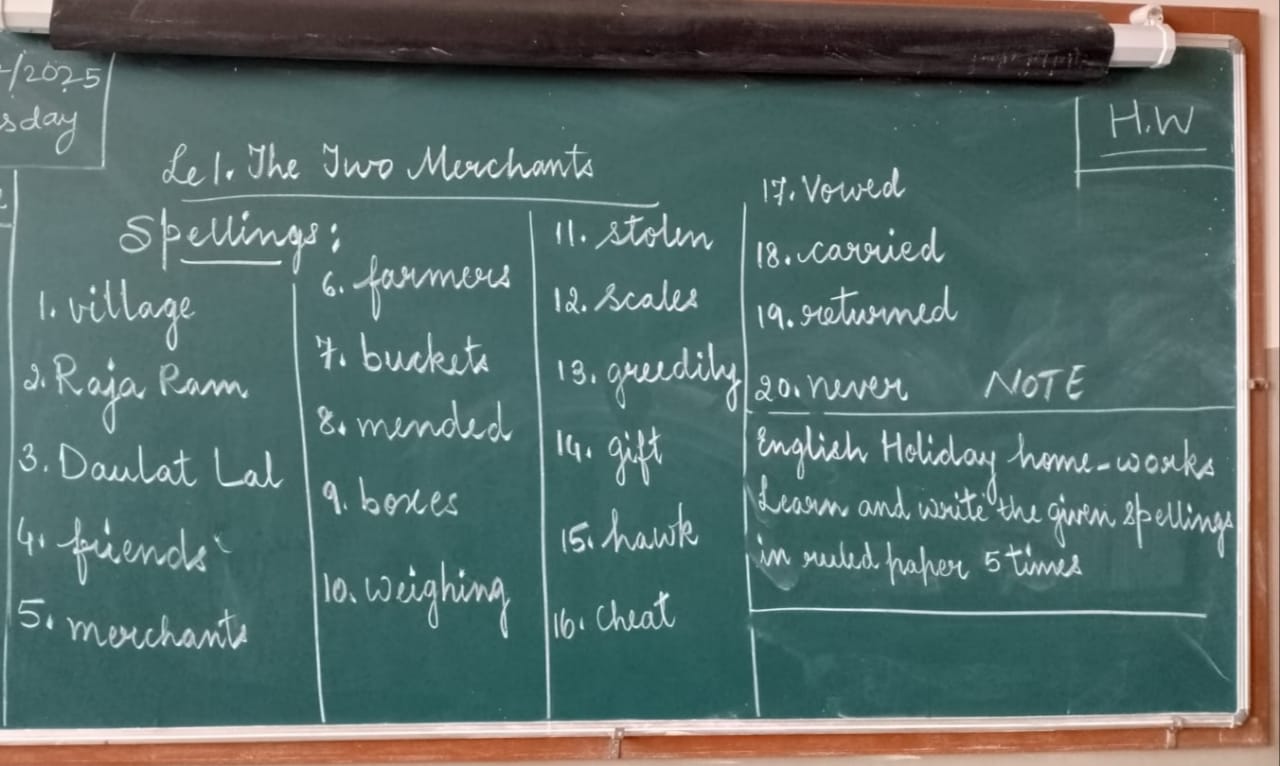 /2025
sday
H.W
Le 1. The Two Merchants
Spellings:
1. village
2. Raja Ram
3. Daulat Lal
4. friends
5. merchants
6. farmers
7. buckets
8. mended
9. boxes
10. Weighing
11. stolen
12. scales
13. greedily
14. gift
15. hawk
16. Cheat
17. Vowed
18. carried
19. returned
20. never
NOTE
English Holiday home-works
Learn and write the given spellings
in ruled paper 5 times